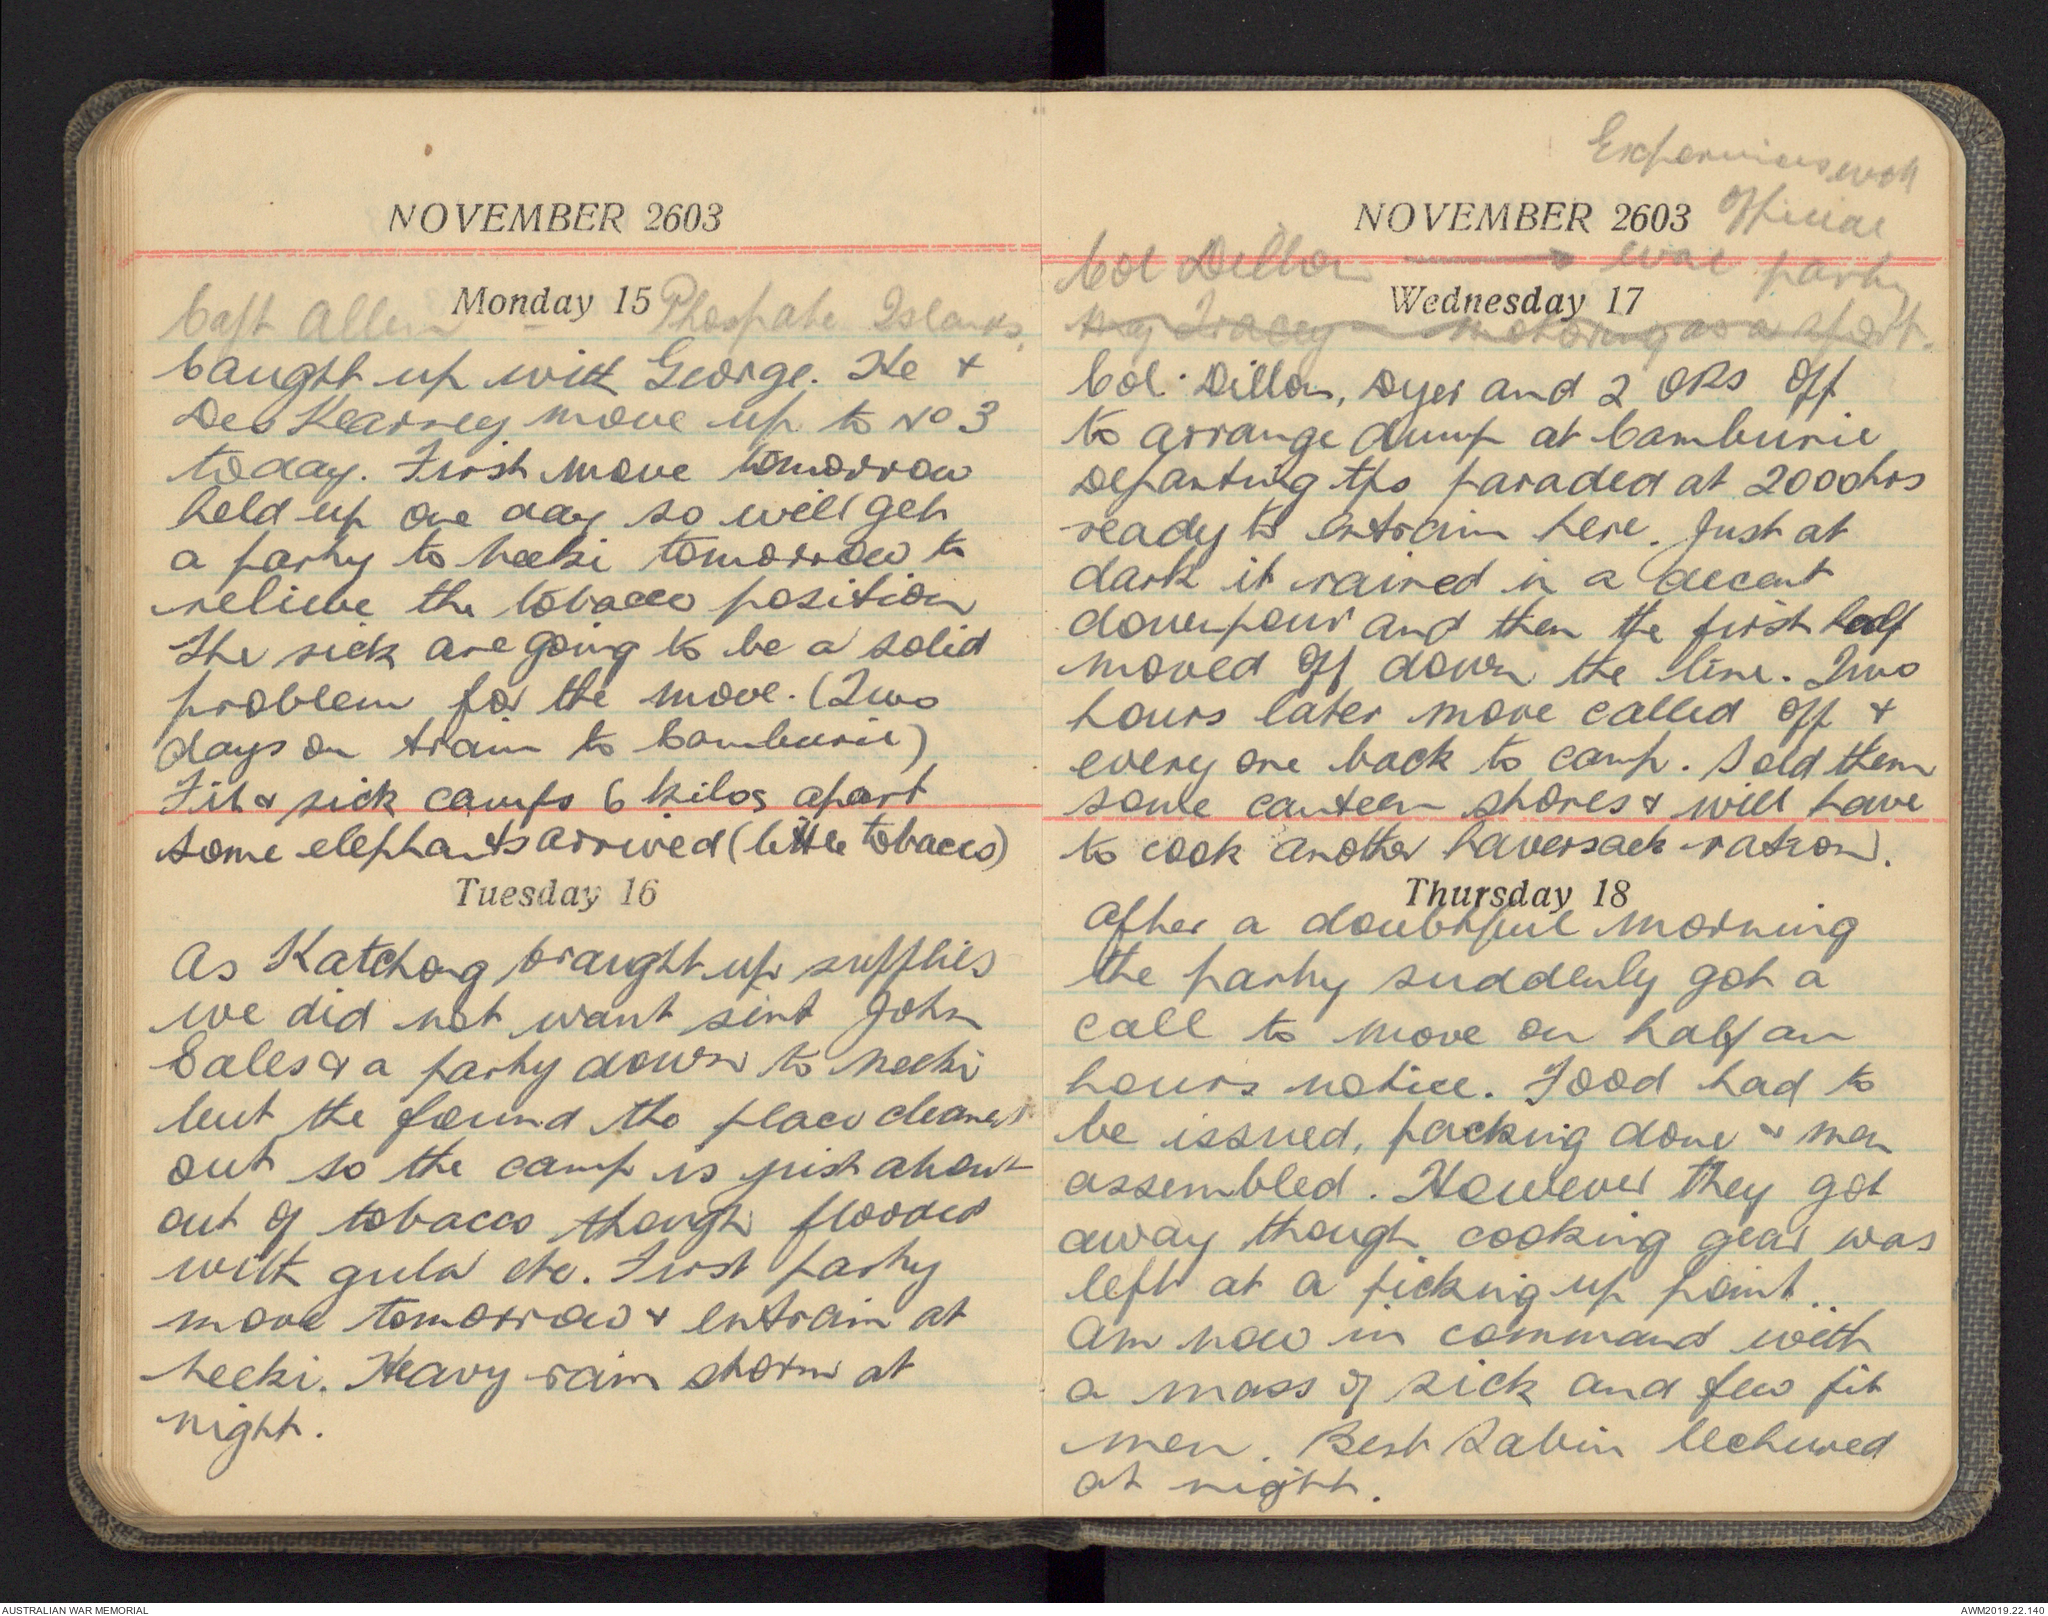 NOVEMBER 2603
Monday 15
Capt Allen - Phospate Islands.
Caught up with George. He +
Des Kearney move up to No 3
today. First move tomorrow
held up one day so will get
a party to neeki tomorrow to
relieve the tobacco position
The sick are going to be a solid
problem for the move. (Two
days on train to Camburie)
Fit & sick camps 6 kilos apart
some elephants arrived (little tobacco)
Tuesday 16
As Katchong braught up supplies
we did not want sent John
Eales & a party down to neeki
but the found the place cleaned
out so the camp is just about
out of tobacco though flooded
with gula etc. First party
move tomorrow & entrain at
neeki. Heavy rain storm at
night.
Experiences with
Official
NOVEMBER 2603
Col Dillon war party
Wednesday 17
Maj Tracey - Motoring as a sport.
Col. Dillon, Dyer and 2 ORs off
to arrange dump at Camburie
Departing tps paraded at 2000hrs
ready to entrain here. Just at
dark it rained in a decent
downpour and then the first half
moved off down the line. Two
hours later move called off &
every one back to camp. Sold them
some canteen stores & will have
to cook another haversack ration.
Thursday 18
After a doubtful morning
the party suddenly got a
call to move on half an
hours notice. Food had to
be issued, packing done & men
assembled. However they got
away though cooking gear was
left at a picking up point..
Am now in command with
a mass of sick and few fit
men. Bert Sabin lectured
at night.
AUSTRALIAN WAR MEMORIAL
AWM2019.22.140